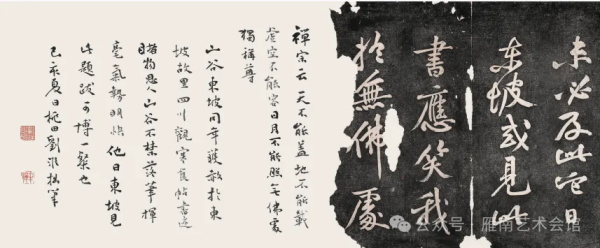 未必及此它日
東坡或見此
書應笑我
於無佛處
禪宗云天不能蓋地不能載
虛空不能容日月不能照無佛處
獨稱尊
山谷東坡同年於東
坡故里四川觀寒食帖書迹
睹物思人山谷不禁落筆揮
毫氣勢明快他日東坡見
此題跋可博一粲也
己亥夏日田劉松筆
公众号·雁南艺术会馆